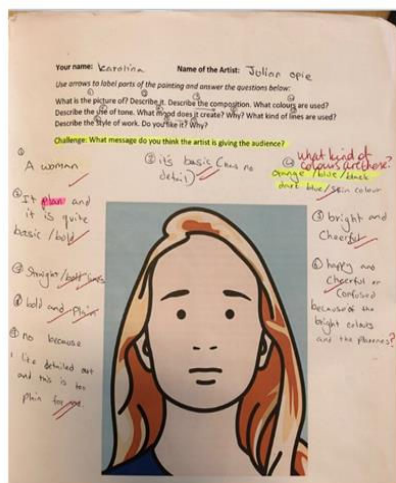 Your name: Karolina Name of the Artist: Julian opie
Use arrows to label parts of the painting and answer the questions below:
① ② ③ ④
What is the picture of? Describe it. Describe the composition. What colours are used?
Describe the use of tone. What mood does it create? Why? What kind of lines are used?
Describe the style of work. Do you like it? Why?
Challenge: What message do you think the artist is giving the audience?
A woman
② it's basic (has no
detail)
what kind of
colours are these?
orange /blue/black
dark blue/skin colour
It plain and
it is quite
basic /bold
bright and
Cheerful
Straight/bold lines
bold and Plain
⑥ happy and
Cheerful or
Confused
because of the
bright colours
and the plainness?
no because
I like detailed art
and this is too
plain for me.